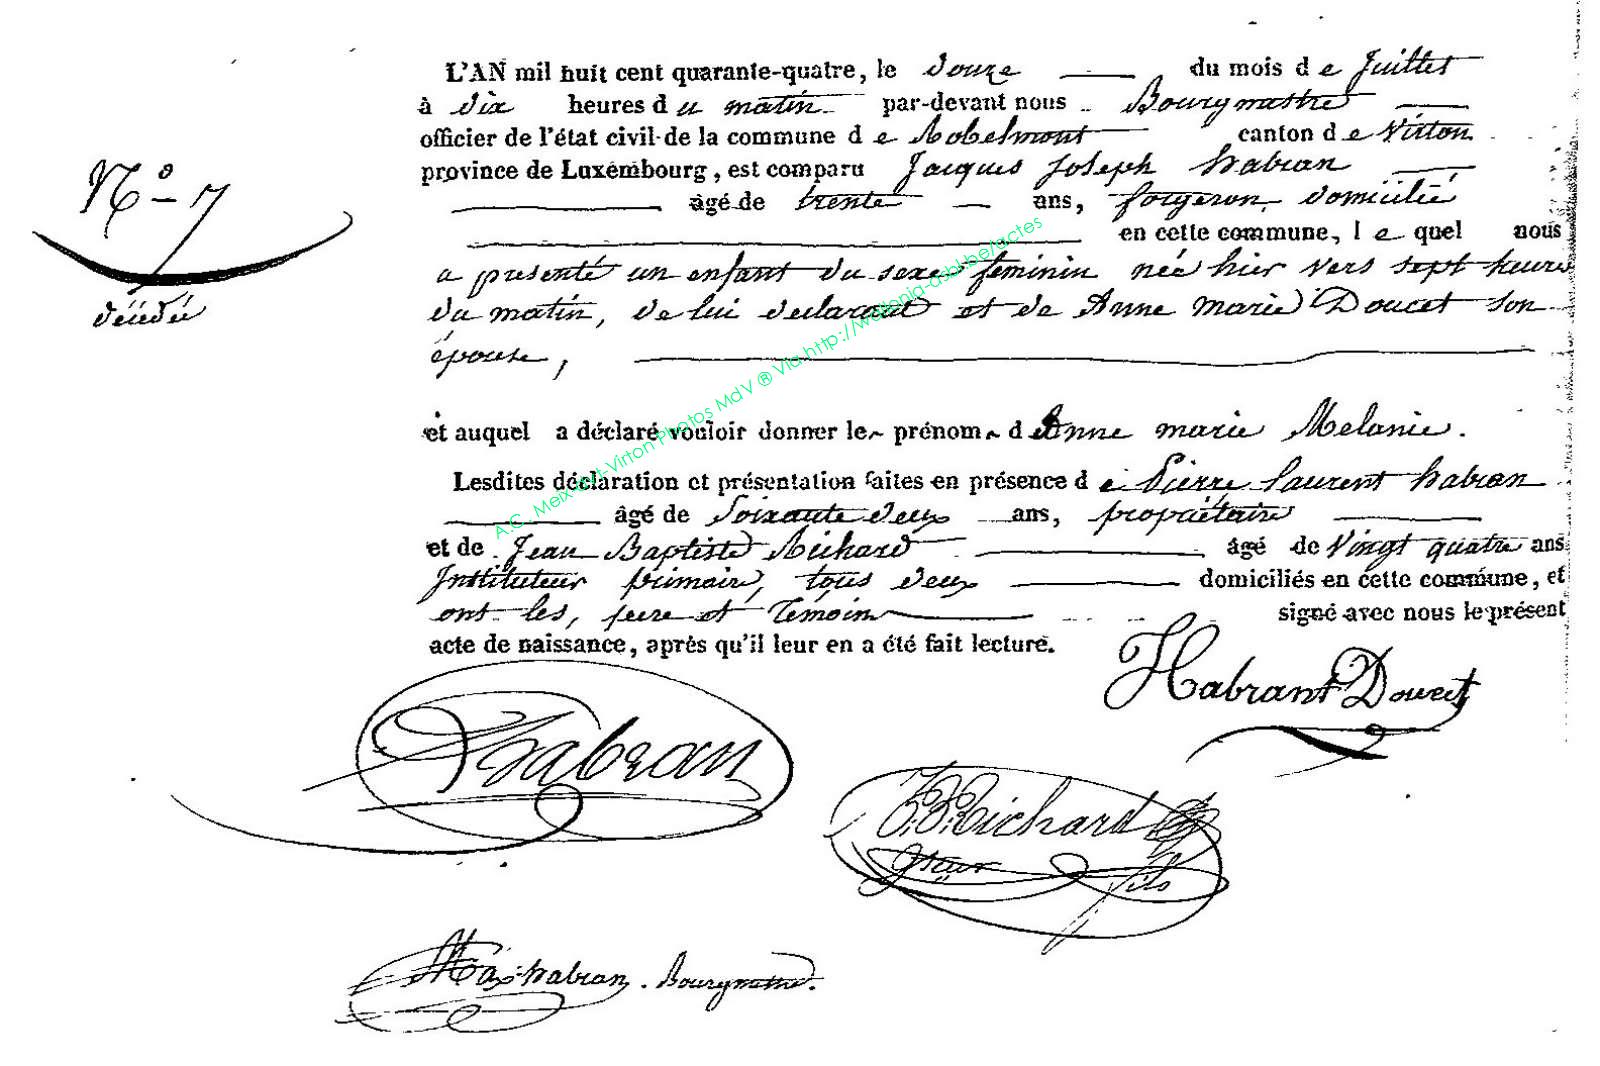 L'AN mil huit cent quarante-quatre, le douze du mois de Juillet
à dix heures du matin par-devant nous Bourgmestre
officier de l'état civil de la commune de Robelmont canton de Virton
province de Luxembourg, est comparu Jacques Joseph habran
âgé de trente ans, forgeron, domicilié
en cette commune, lequel nous
a presenté un enfant du sexe feminin née hier vers sept heures
du matin, de lui declarant et de Anne marie Doucet son
épouse,
et auquel a déclaré vouloir donner les prénoms d'Anne marie Melanie.
Lesdites déclaration et présentation faites en présence de Pierre laurent habran
âgé de Soixante deux ans, propriétaire
et de Jean Baptiste Richard âgé de Vingt quatre ans
Instituteur primaire, tous deux domiciliés en cette commune, et
ont les, pere et Témoin signé avec nous le présent
acte de naissance, après qu'il leur en a été fait lecture.
N° 7
décédée
Habrant Doucet
habran
J.B. Richard
fils
habran. Bourgmestre.
A.C. Meix-dvt-Virton Photos MdV ® Via http://wallonia-asbl.be/actes